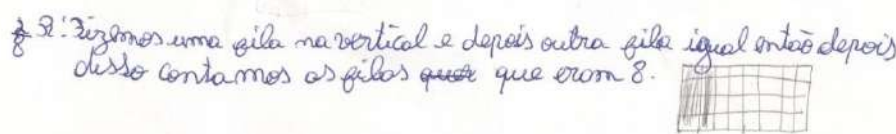 2/8 R: Fizemos uma fila na vertical e depois outra fila igual então depois
disso contamos as filas que eram 8.